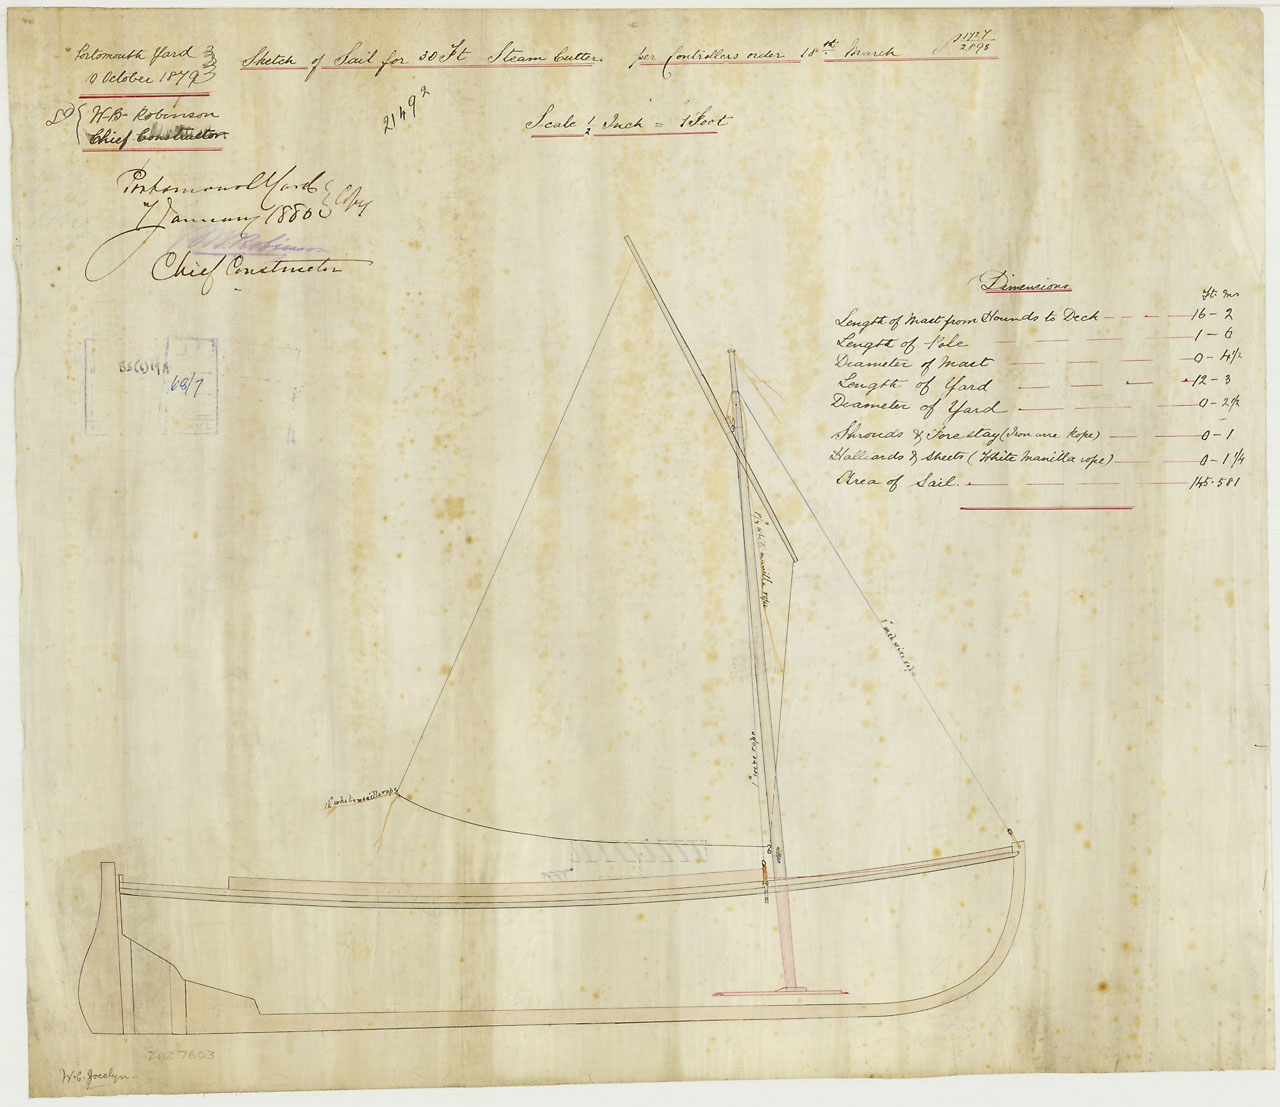 Portsmouth Yard
10 October 1879
Sketch of Sail for 30 Ft Steam Cutter. per Controllers order 18th March
2898
W. B. Robinson
Chief Constructor
2149²
Scale ½ Inch = 1 Foot
Portsmouth Yard
7 January 1880 } Copy
W B Robinson
Chief Constructor
68/7
Dimensions
Ft. Ins
Length of Mast from Hounds to Deck 16 - 2
Length of Pole 1 - 6
Diameter of Mast 0 - 4½
Length of Yard 12 - 3
Diameter of Yard 0 - 2½
Shrouds & Fore stay (Iron wire Rope) 0 - 1
Halliards & Sheets (White Manilla rope) 0 - 1¼
Area of Sail. 145.581
white manilla rope
wire rope
1" wire rope
white manilla rope
ZAZ7603
W. C. Jocelyn